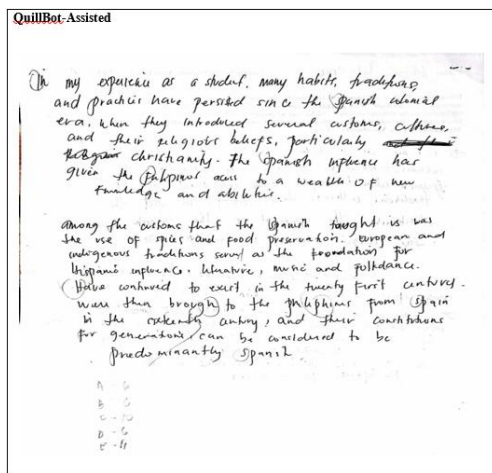 QuillBot-Assisted
In my experience as a student, many habits, traditions,
and practices have persisted since the Spanish colonial
era, when they introduced several customs, cultures,
and their religious beliefs, particularly
christianity. The Spanish influence has
given the Philipines access to a wealth of new
knowledge and abilities.
among the customs that the Spanish taught is was
the use of spices and food preservation. European and
indigenous traditions served as the foundation for
hispanic influence. literature, music and folkdance.
Have continued to exist in the twenty first century.
were then brought to the philiphines from Spain
in the sixteenth century, and their constitutions
for generations, can be considered to be
predominantly Spanish.
A - 6
B -
C - 10
D - 6
E - 11